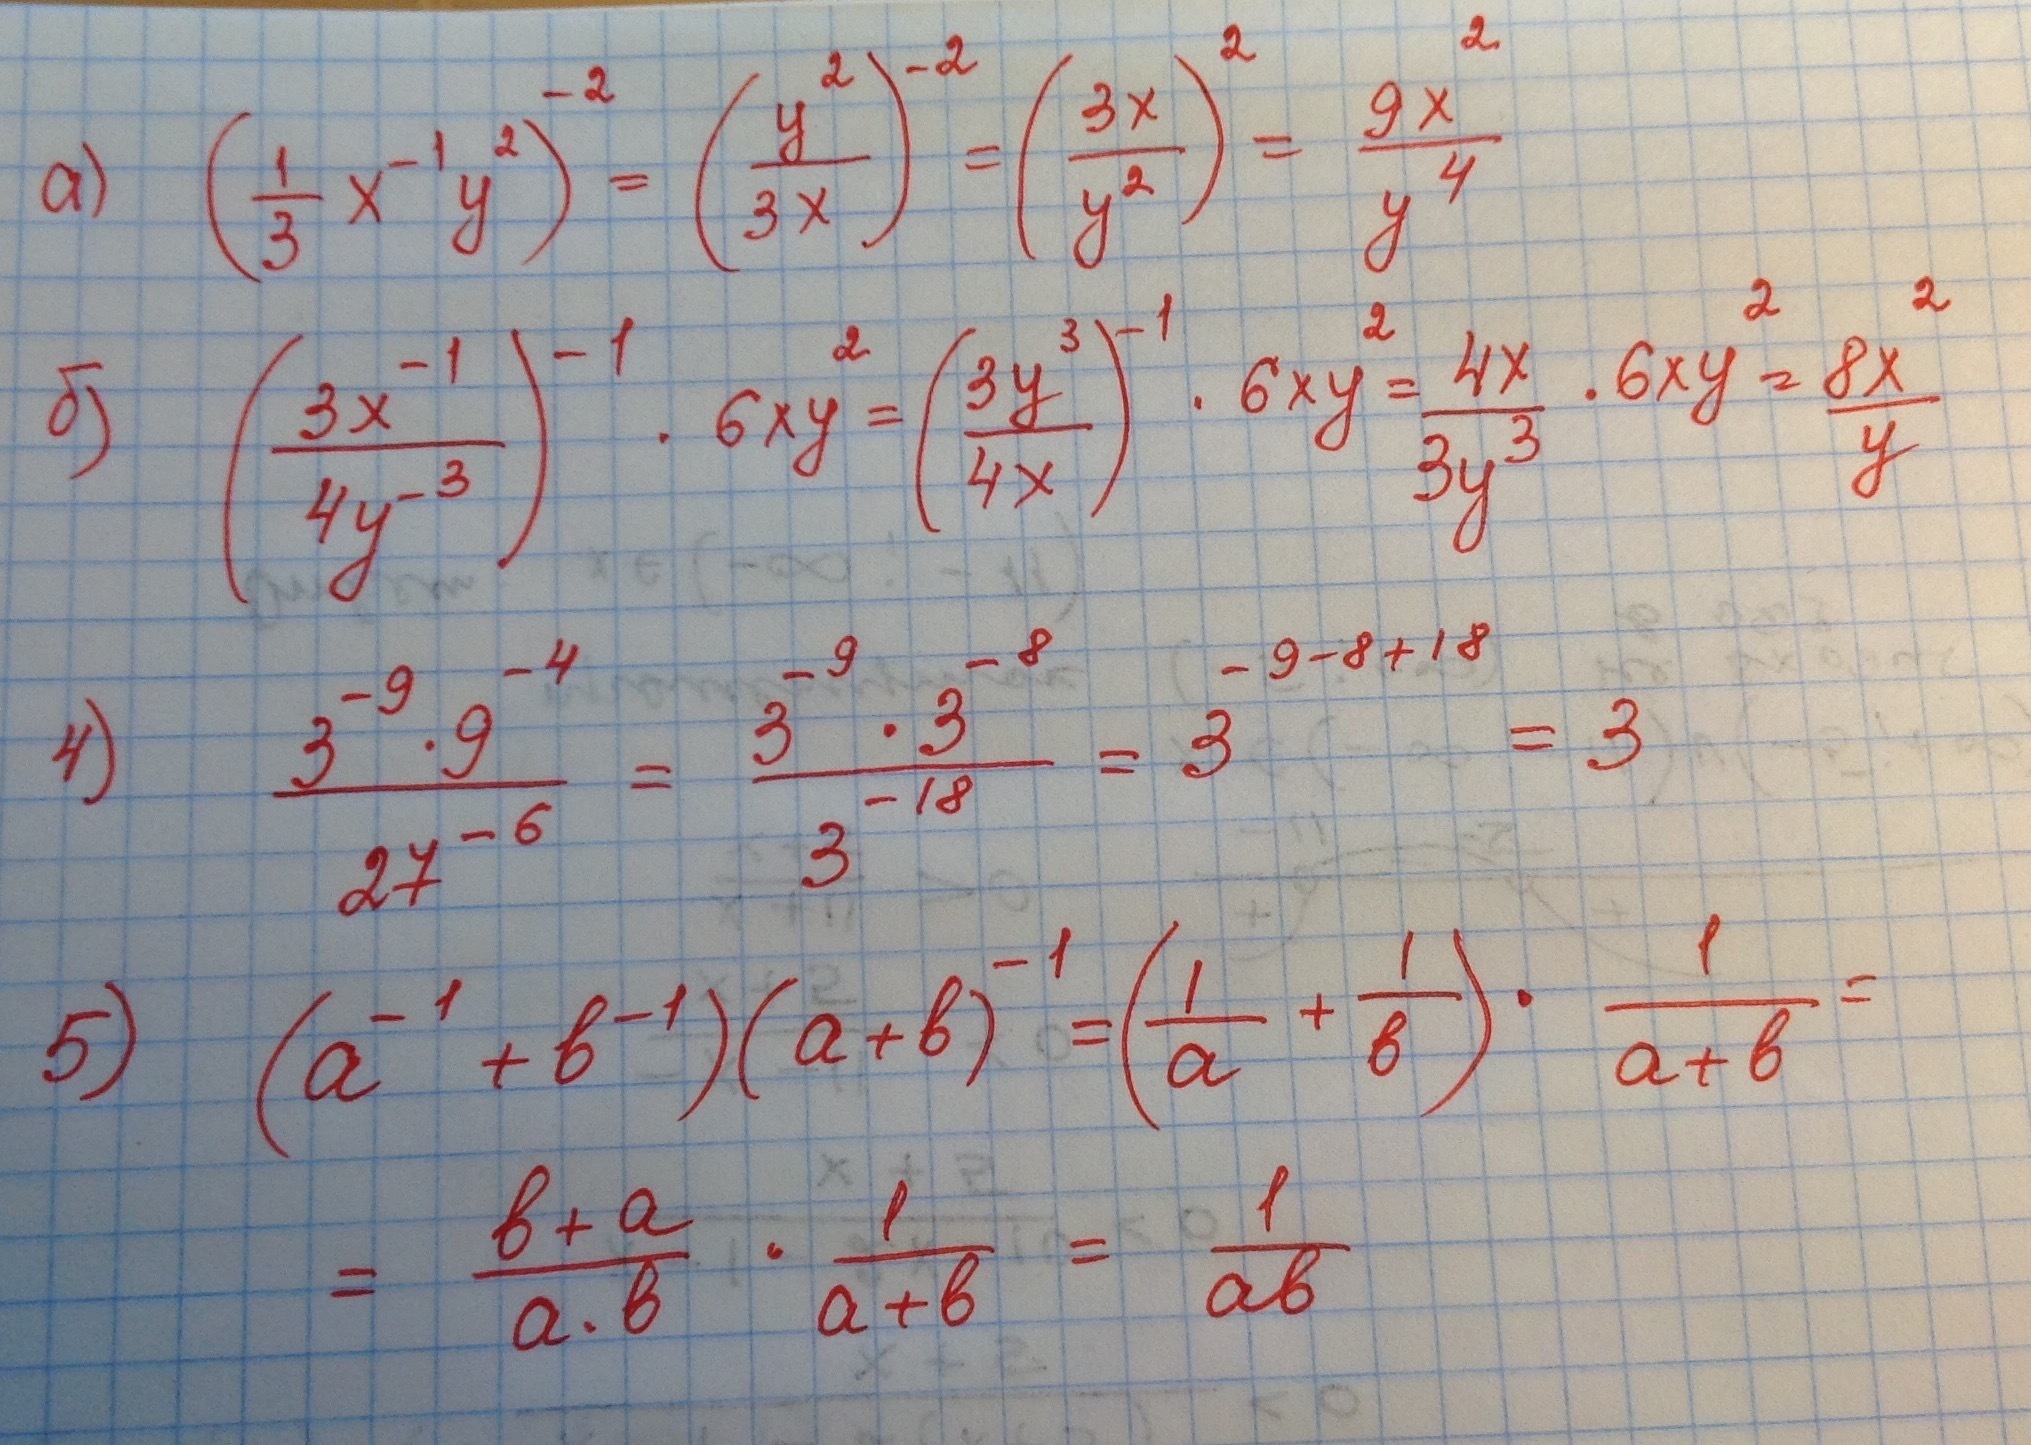 а) (1/3 x⁻¹y²)⁻² = (y²/3x)⁻² = (3x/y²)² = 9x²/y⁴
б) (3x⁻¹/4y⁻³)⁻¹ · 6xy² = (3y³/4x)⁻¹ · 6xy² = 4x/3y³ · 6xy² = 8x²/y
4) 3⁻⁹ · 9⁻⁴/27⁻⁶ = 3⁻⁹ · 3⁻⁸/3⁻¹⁸ = 3⁻⁹⁻⁸⁺¹⁸ = 3
5) (a⁻¹ + b⁻¹)(a+b)⁻¹ = (1/a + 1/b) · 1/(a+b) =
= (b+a)/(a·b) · 1/(a+b) = 1/ab